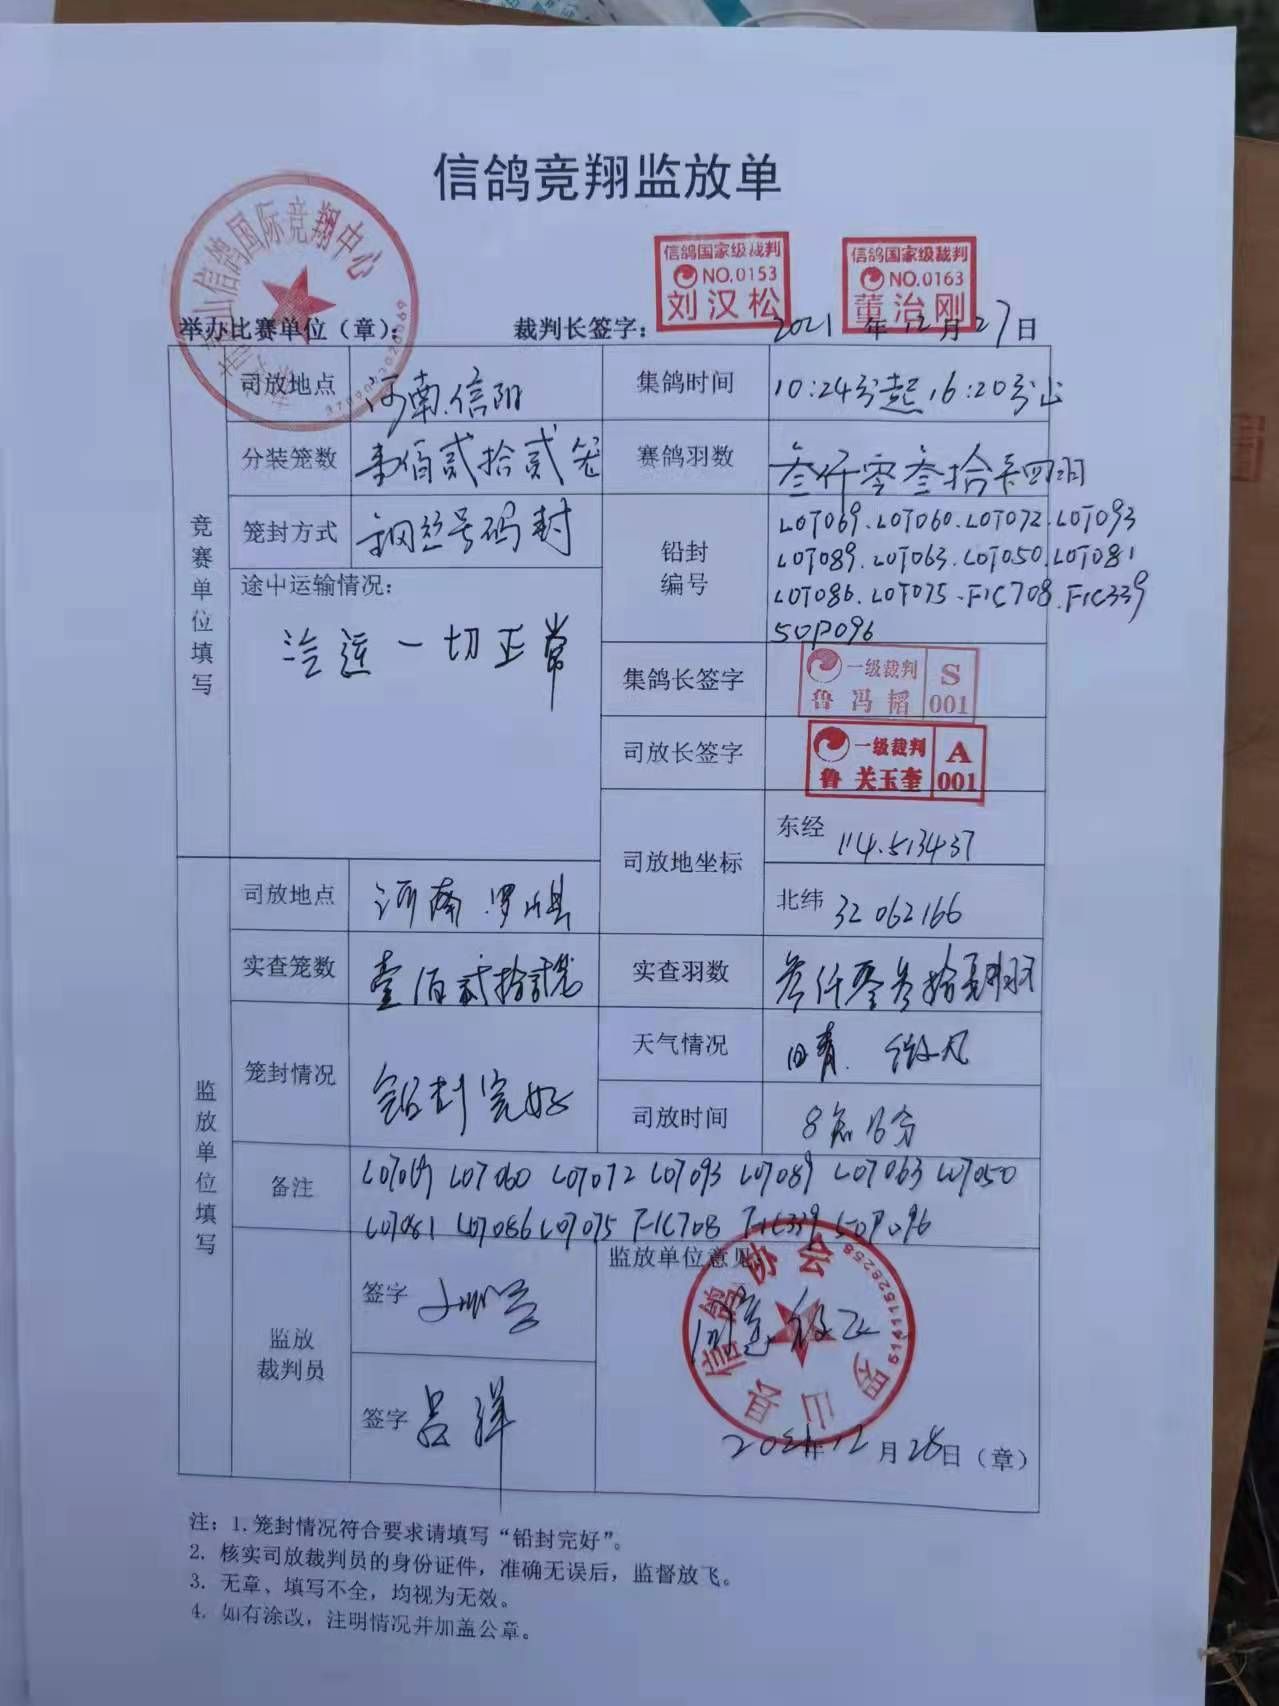 信鸽竞翔监放单
山信鸽国际竞翔中心
信鸽国家级裁判
NO.0153
刘汉松
信鸽国家级裁判
NO.0163
董治刚
举办比赛单位（章）： 裁判长签字： 2021年12月27日
竞赛单位填写
司放地点 河南.信阳 集鸽时间 10:24分起16:20分止
分装笼数 壹佰贰拾贰笼 赛鸽羽数 叁仟零叁拾 四羽
笼封方式 钢丝号码封 铅封编号 LOT069.LOT060.LOT072.LOT093
LOT089.LOT063.LOT050.LOT081
LOT086.LOT075.FIC708.FIC339
SOP096
途中运输情况：
一切正常
集鸽长签字 一级裁判 鲁 冯韬 S 001
司放长签字 一级裁判 鲁 关玉奎 A 001
司放地坐标 东经 114.513437
北纬 32 062166
监放单位填写
司放地点 河南.罗山县
实查笼数 壹佰贰拾贰笼 实查羽数 叁仟零叁拾 羽
笼封情况 铅封完好 天气情况 晴. 微风
司放时间 8点16分
备注 LOT069 LOT060 LOT072 LOT093 LOT089 LOT063 LOT050
LOT081 LOT086 LOT075 FIC708 FIC339 SOP096
监放裁判员 签字
签字 吕洋
监放单位意见：
同意放飞
罗山县信鸽协会
2021年12月28日（章）
注：1.笼封情况符合要求请填写“铅封完好”。
2. 核实司放裁判员的身份证件，准确无误后，监督放飞。
3. 无章、填写不全，均视为无效。
4. 如有涂改，注明情况并加盖公章。